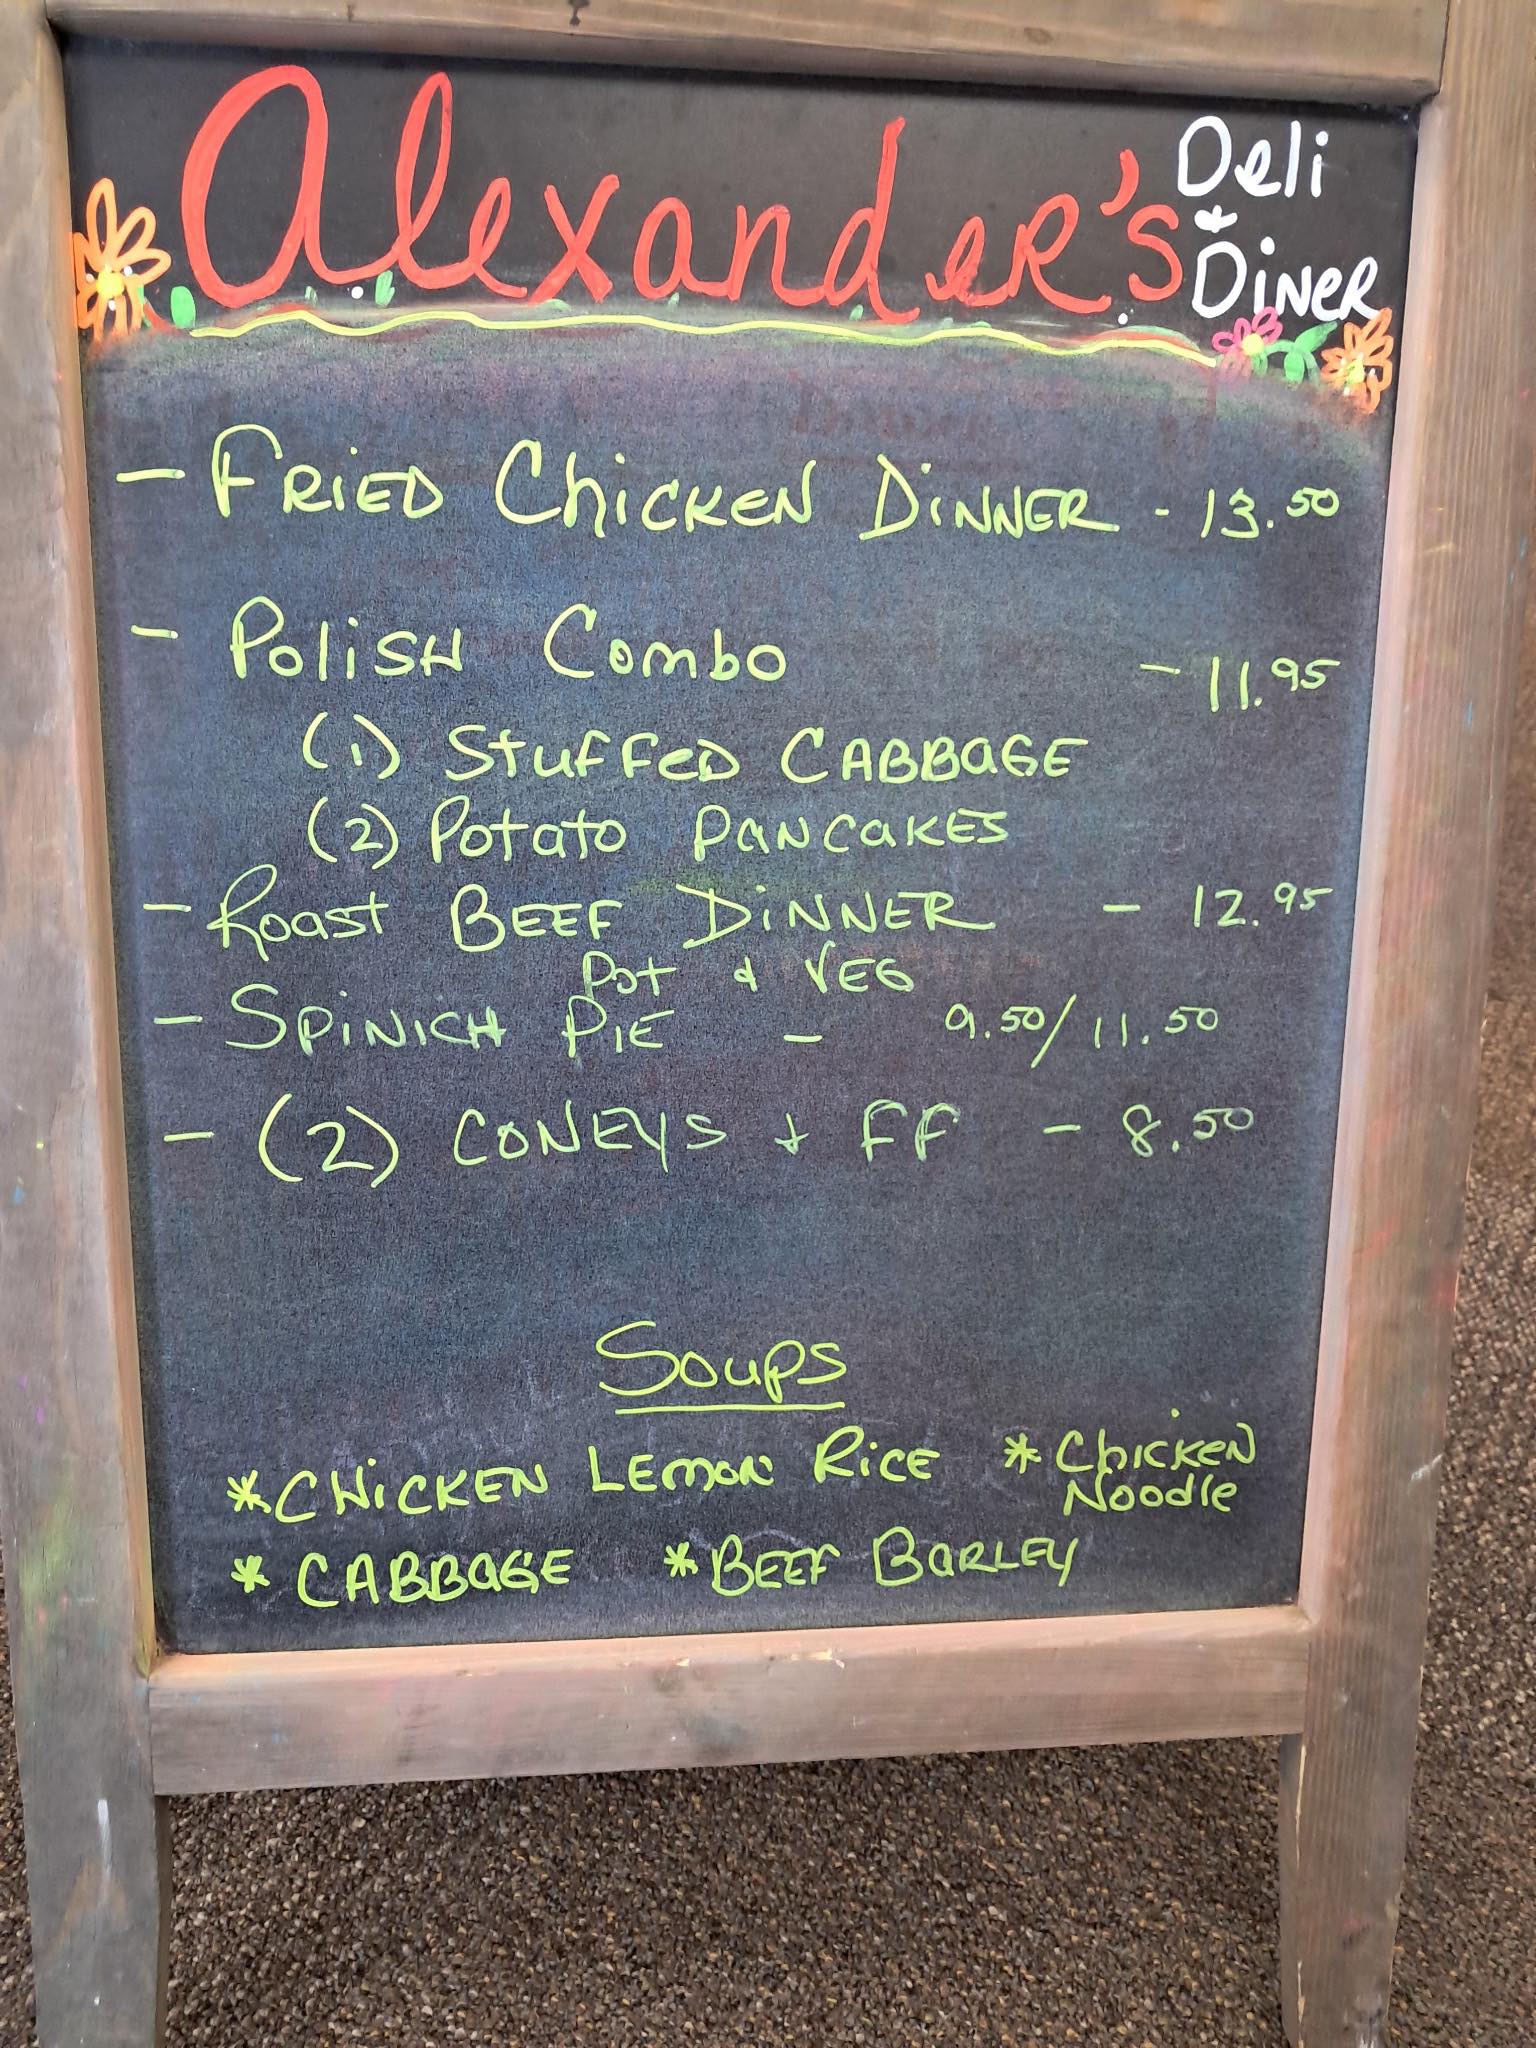 Alexander's Deli
&
Diner
- Fried Chicken Dinner - 13.50
- Polish Combo - 11.95
(1) Stuffed Cabbage
(2) Potato Pancakes
- Roast Beef Dinner - 12.95
Pot & Veg
- Spinich Pie - 9.50/11.50
- (2) Coneys + FF - 8.50
Soups
* Chicken Lemon Rice * Chicken
Noodle
* Cabbage * Beef Barley